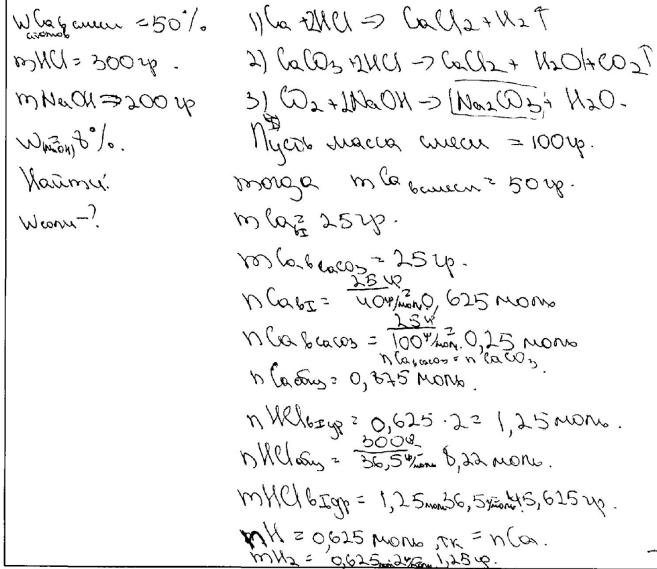 w Ca в смеси = 50%.
атомов
mHCl = 300гр.
mNaOH => 200гр
w(NaOH) = 8%.
Найти:
w соли - ?
1) Ca + 2HCl => CaCl2 + H2↑
2) CaCO3 + 2HCl -> CaCl2 + H2O + CO2↑
3) CO2 + 2NaOH -> Na2CO3 + H2O.
Пусть масса смеси = 100гр.
тогда m Ca в смеси = 50гр.
m Ca в I = 25гр.
m Ca в CaCO3 = 25гр.
n Ca в I = 25гр / 40гр/моль = 0,625 моль
n Ca в CaCO3 = 25г / 100г/моль = 0,25 моль
n Ca в CaCO3 = n CaCO3.
n Ca общ = 0,875 моль.
n HCl в I ур = 0,625 · 2 = 1,25 моль.
n HCl общ = 300г / 36,5г/моль = 8,22 моль.
m HCl в I ур = 1,25моль · 36,5г/моль = 45,625гр.
nH = 0,625 моль, тк = n Ca.
mH2 = 0,625моль · 2г/моль = 1,25гр.